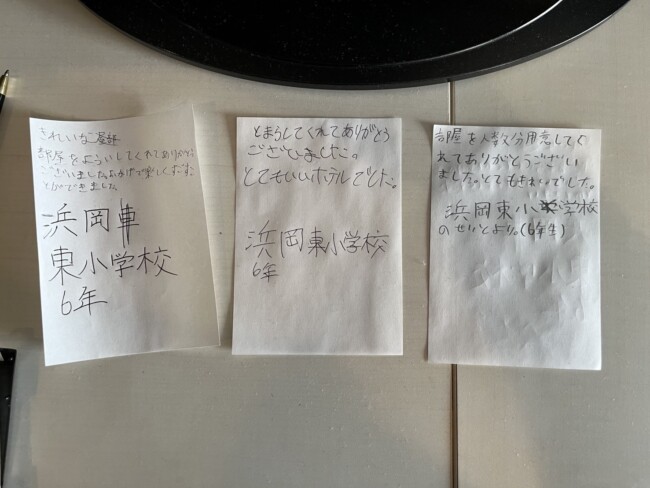 きれいなご部屋
部屋をよういしてくれてありがとう
ございましたおかげで楽しくすごすこ
とができました
浜岡
東小学校
6年
とまらしてくれてありがとう
ございました。
とてもいいホテルでした。
浜岡東小学校
6年
部屋を人数分用意してく
れてありがとうござい
ました。とてもきれいでした。
浜岡東小学校
のせいとより。(6年生)